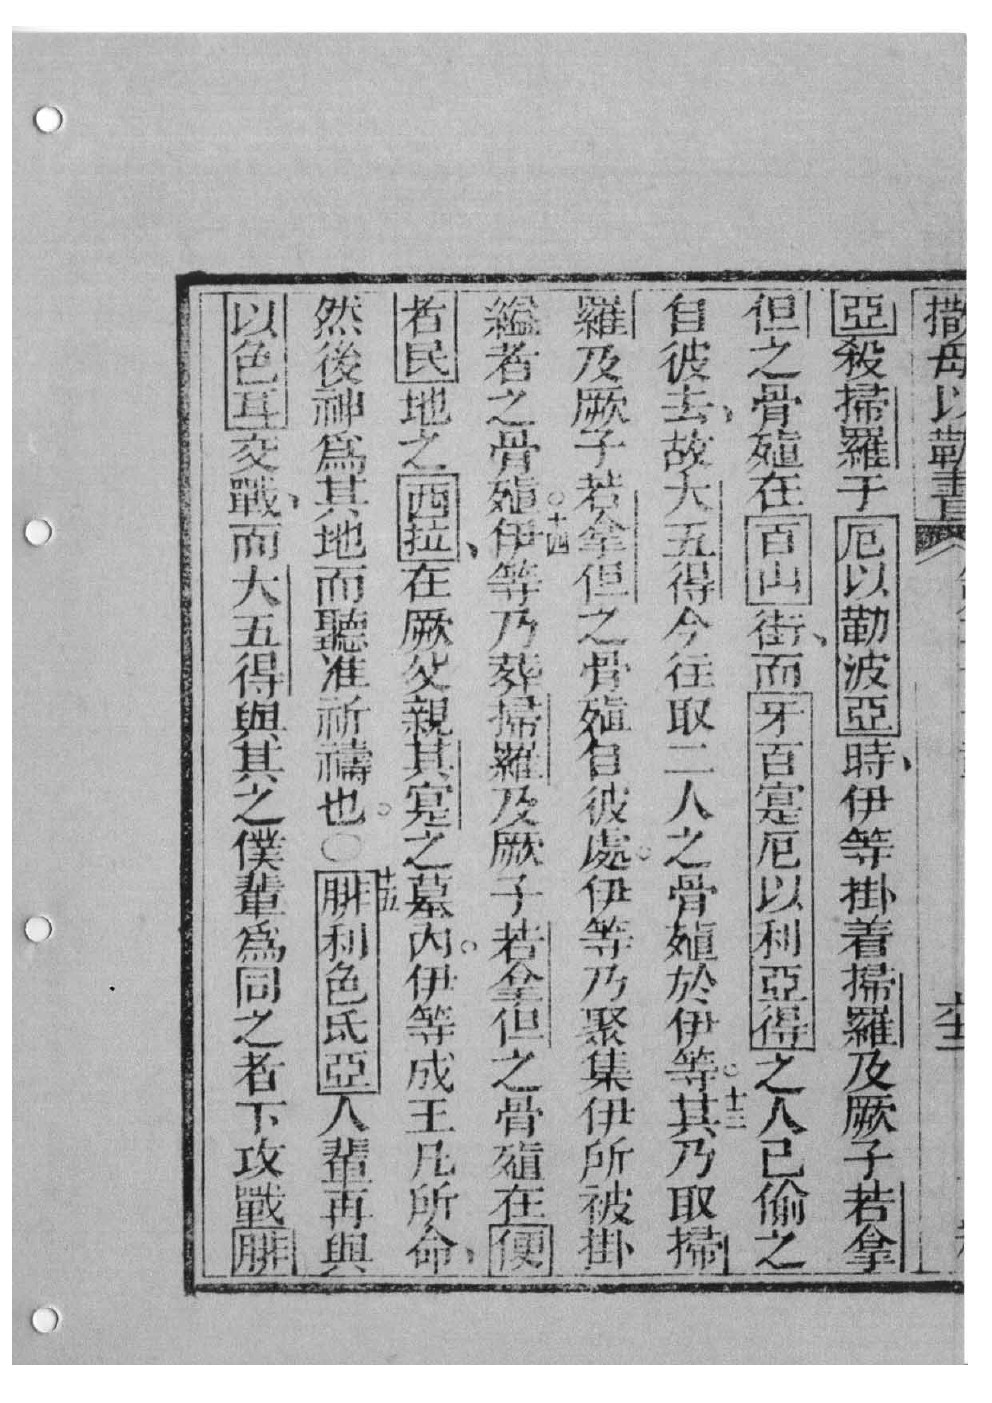 撒母以勒書
亞殺掃羅于厄以勒波亞時、伊等掛着掃羅及厥子若拿
但之骨殖在百山街、而牙百寔厄以利亞得之人已偷之
自彼去、故大五得今往取二人之骨殖於伊等。十三其乃取掃
羅及厥子若拿但之骨殖自彼處。伊等乃聚集伊所被掛
縊者之骨殖。十四伊等乃葬掃羅及厥子若拿但之骨殖在便
者民地之西拉、在厥父親其寔之墓內。伊等成王凡所命、
然後神爲其地而聽准祈禱也。〇十五腓利色氏亞人輩再與
以色耳交戰、而大五得與其之僕輩爲同之者下攻戰腓